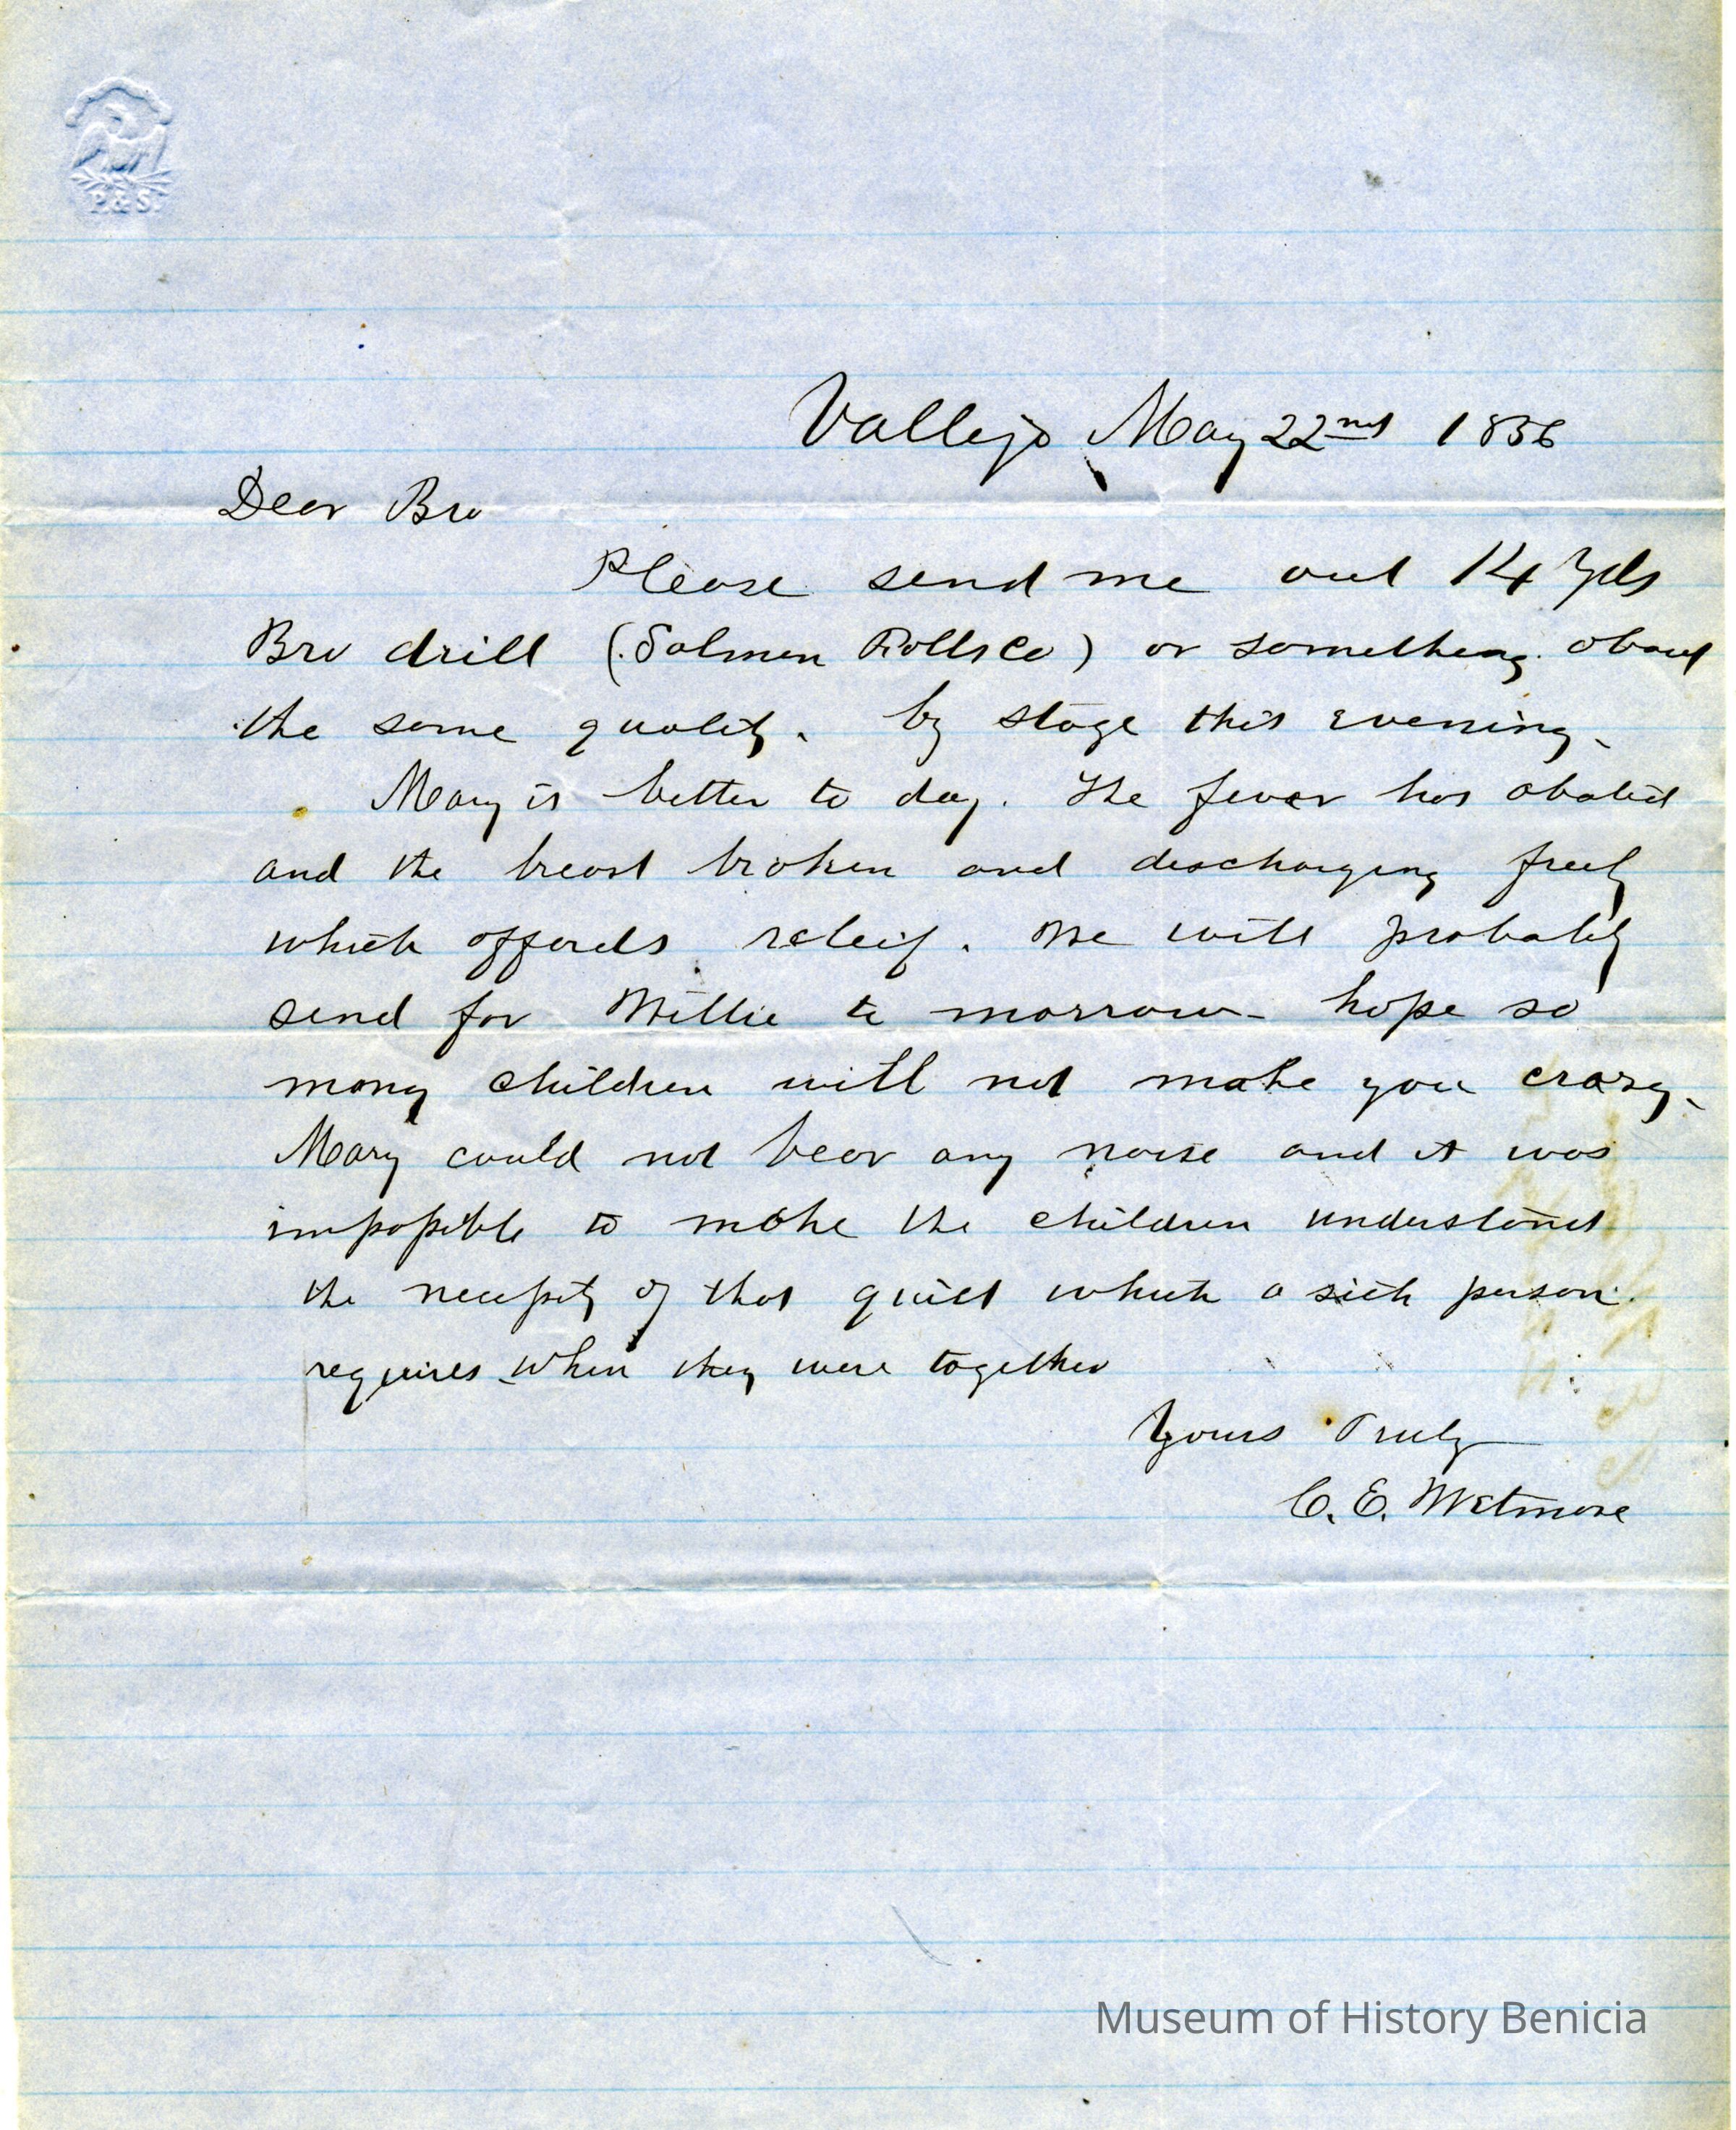 P. & S.
Vallejo May 22nd 1856
Dear Bro
Please send me out 14 Yds
Bro drill (Salmon Falls Co) or something about
the same quality. by stage this evening.
Mary is better to day. The fever has abated
and the breast broken and discharging freely
which affords releif. We will probably
send for Willie to morrow - hope so
many children will not make you crazy.
Mary could not bear any noise and it was
impossible to make the children understand
the necessity of that quiet which a sick person
requires when they were together
Yours Truly
C. E. Wetmore
Museum of History Benicia